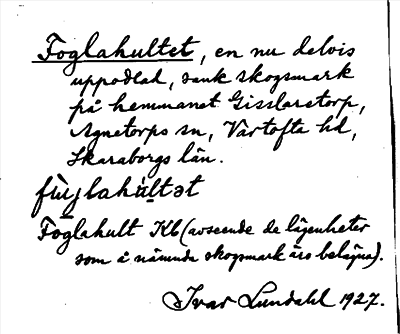 Foglahultet, en nu delvis
uppodlad, sank skogsmark
på hemmanet Gisslarstorp,
Agnetorps sn, Vartofta hd,
Skaraborgs län.
fùglahúltət
Foglahult Kb (avseende de lägenheter
som å nämnda skogsmark äro belägna).
Ivar Lundahl 1927.